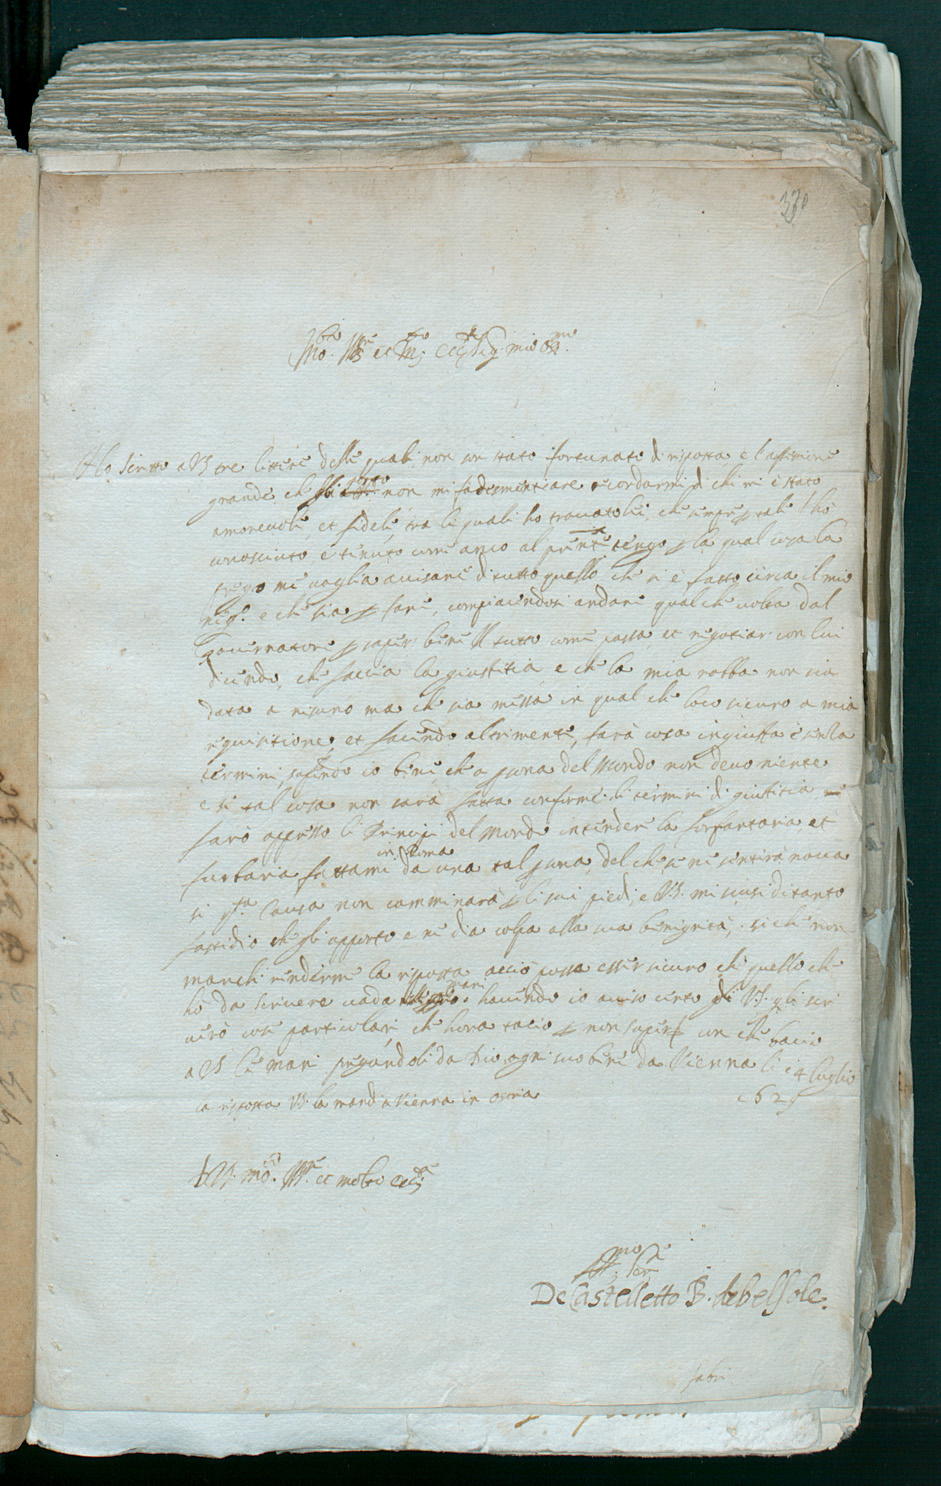 370
Mo.to Ill.re et m.to ecc.te Sig. mio oss.mo
Ho scritto a VS tre littere delle quali non son stato fortunato di risposta, è l'afitione
grande che non mi fa dismenticare ricordarmi di chi mi è stato
amorevole, et fidele, tra li quali ho trovato lei, che sempre per tale l'ho
conosciuto, e tenuto come amico al presente tengo per la qual cosa la
prego mi voglia avisare di tutto quello che si è fatto circa il mio
neg.o e che sia per farsi, compiacendosi andare qualche volta dal
Governatore per saper bene il tutto come passa et negotiar con lui
dicendo, che faccia la giustitia e che la mia robba non sia
data a nisuno ma che sia messa in qualche loco sicuro a mia
requisitione, et facendo altrimente, sarà cosa ingiusta è senza
termini, sapendo io bene che a persona del Mondo non devo niente
e si tal cosa non sarà fatta conforme li termini di giustitia
farò appresso li Principi del Mondo intender la forfantaria, et
furbaria fattami in Roma da una tal persona, del che se ne sentirà nova
si q.sta causa non camminarà per li suoi piedi, e VS. mi scusi di tanto
fastidio che gli apporto e ne dia colpa alla sua benignità, si che non
manchi rendermi la risposta acciò possa esser sicuro che quello che
hò da scrivere vada havendo io aviso certo di VS. gli scri
verò cose particolari che hora tacio per non saper con che bacio
a VS le mani pregandoli da Dio ogni suo bene da Vienna li 14 luglio
la risposta VS. la manda a Vienna in 1629
D VS. mo.to Ill.re et molto ecc.te
Aff.mo ser.re
De Castelletto B.